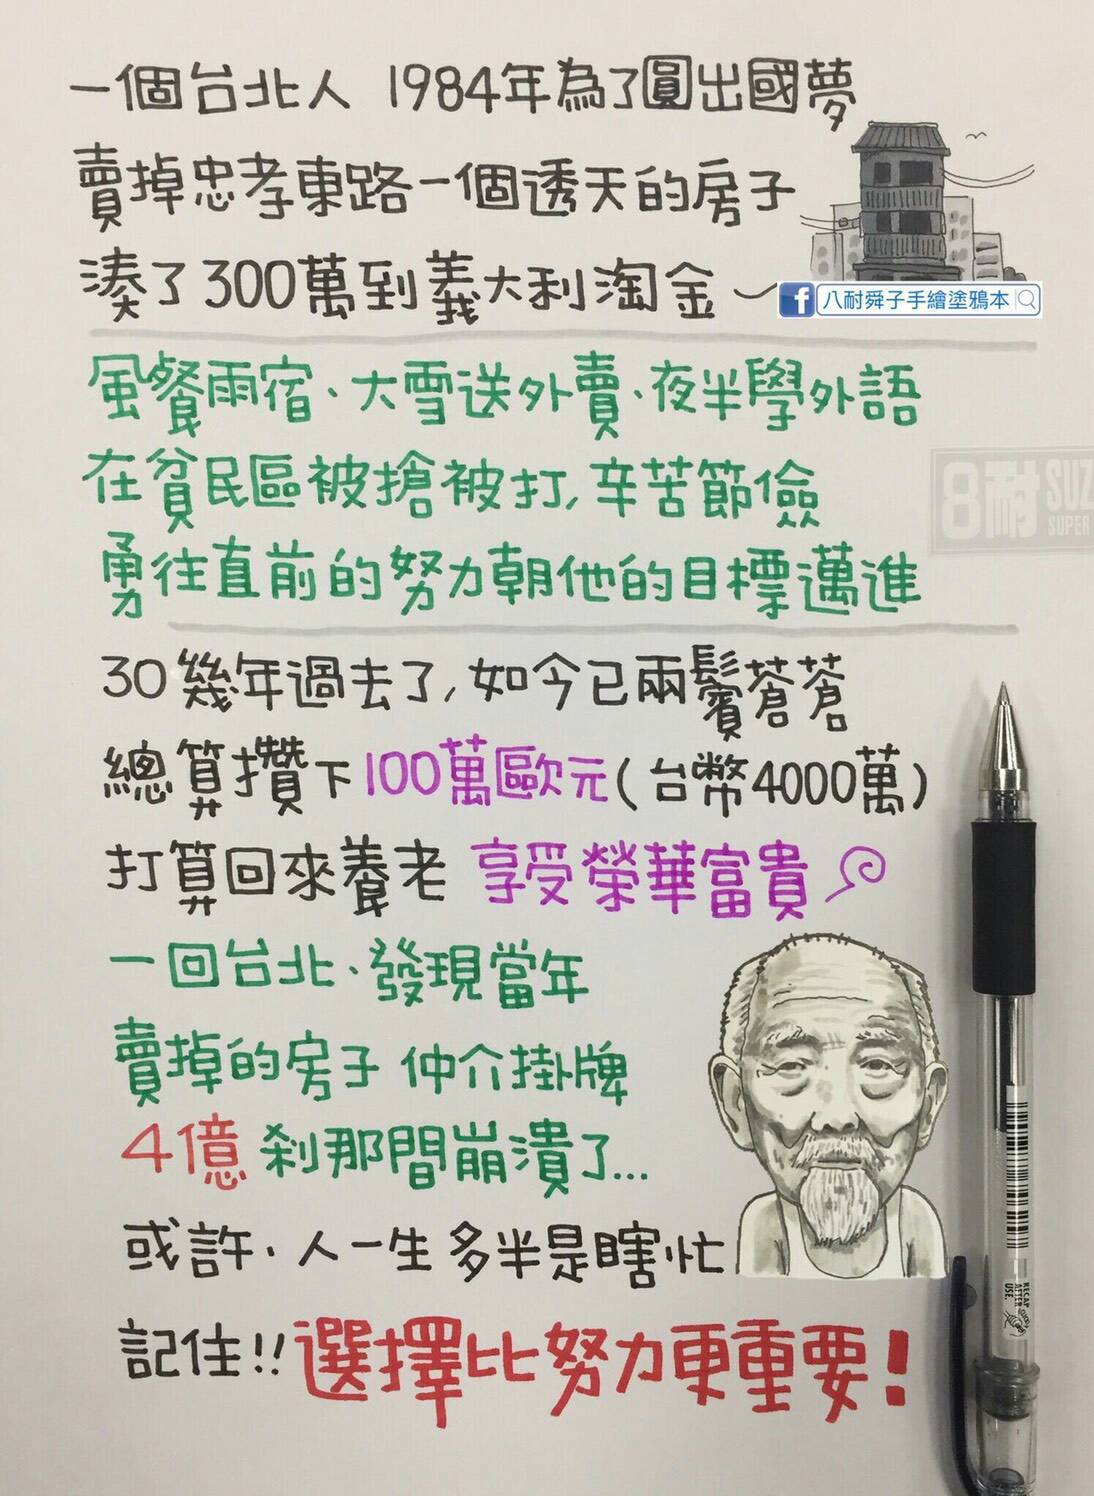 一個台北人 1984年為了圓出國夢
賣掉忠孝東路一個透天的房子
湊了300萬到義大利淘金
f 八耐舜子手繪塗鴉本
風餐雨宿、大雪送外賣、夜半學外語
在貧民區被搶被打，辛苦節儉
勇往直前的努力朝他的目標邁進
8耐 SUZ
SUPER
30幾年過去了，如今已兩鬢蒼蒼
總算攢下100萬歐元(台幣4000萬)
打算回來養老 享受榮華富貴
一回台北、發現當年
賣掉的房子 仲介掛牌
4億 剎那間崩潰了...
或許、人一生多半是瞎忙
記住!! 選擇比努力更重要!
RECAP
AFTER
USE.